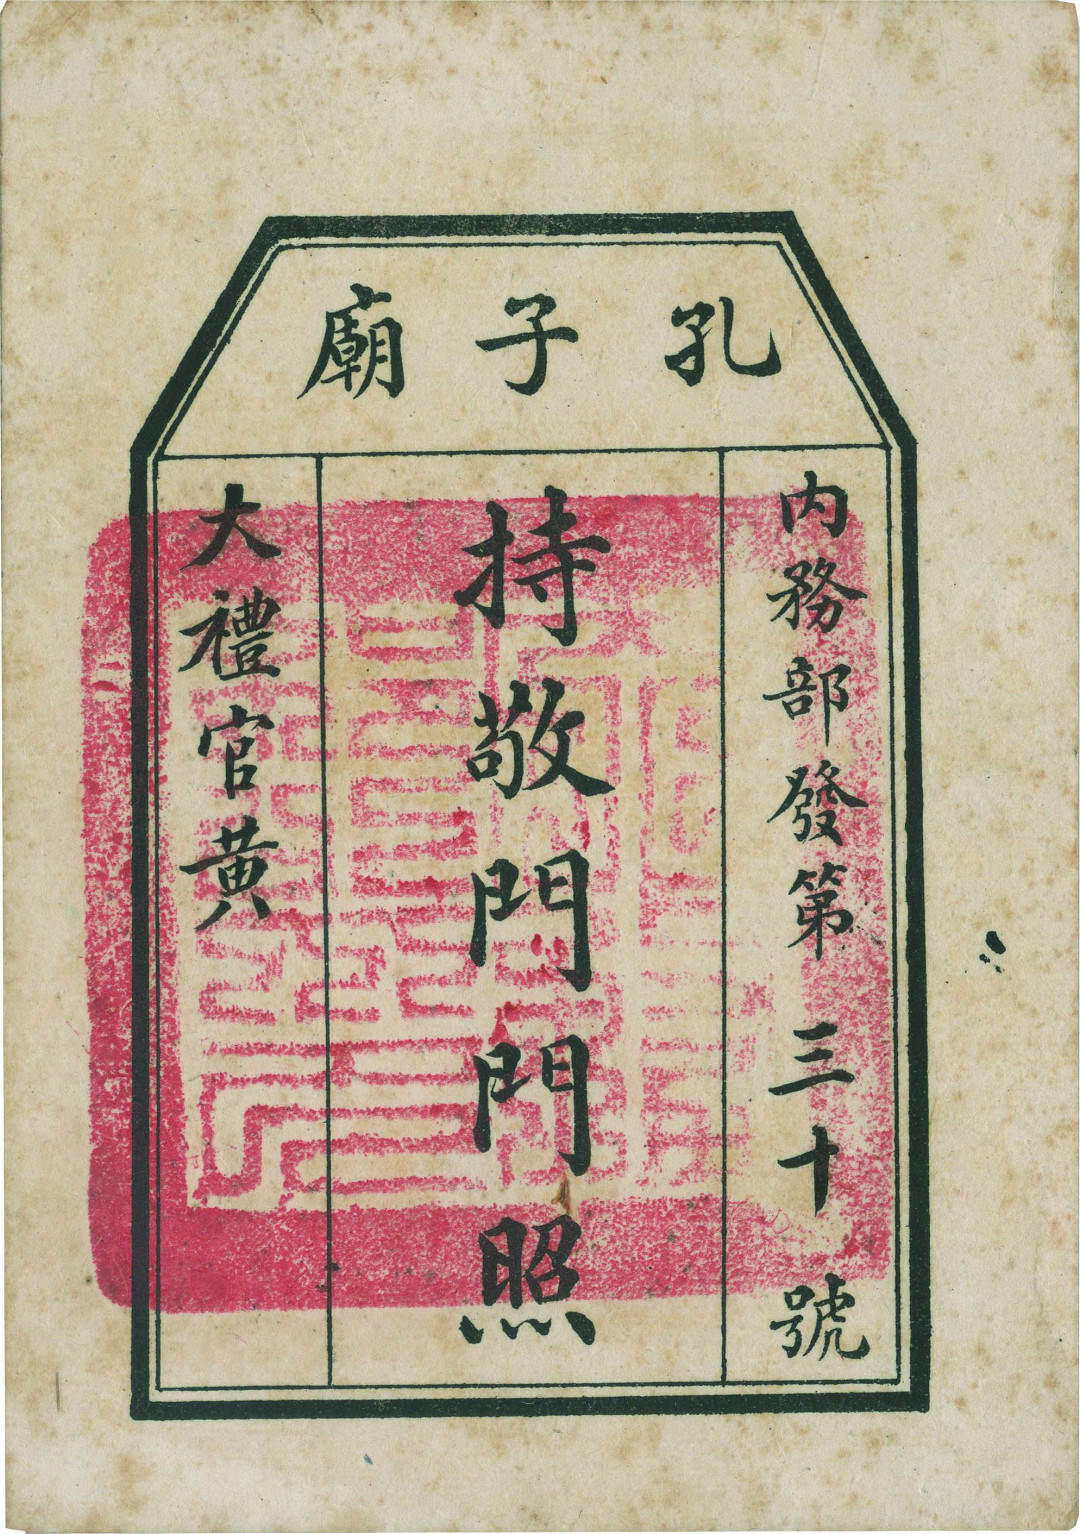 孔子廟
内務部發第三十號
持敬門門照
大禮官黃